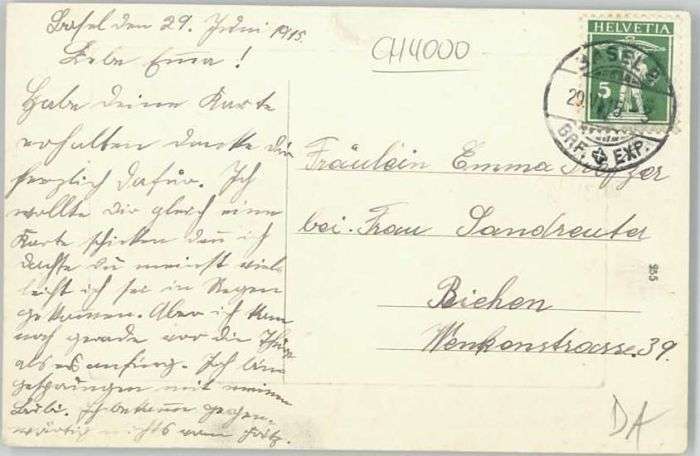 Basel den 29. Juni 1915.
Liebe Emma!
Habe deine Karte
erhalten danke dir
herzlich dafür. Ich
wollte dir gleich eine
Karte schicken denn ich
dachte du meinst viel-
leicht ich sei in Regen
gekommen. Aber ich kam
noch gerade vor die Thüre
als es anfing. Ich bin
gesprungen mit meinem
Ich bekomme gegen-
wärtig nichts vom
CH4000
HELVETIA
5
BASEL 9
BRF. EXP.
Fräulein Emma
bei Frau Sandreuter
Riehen
Wenkenstrasse 39.
955
DA